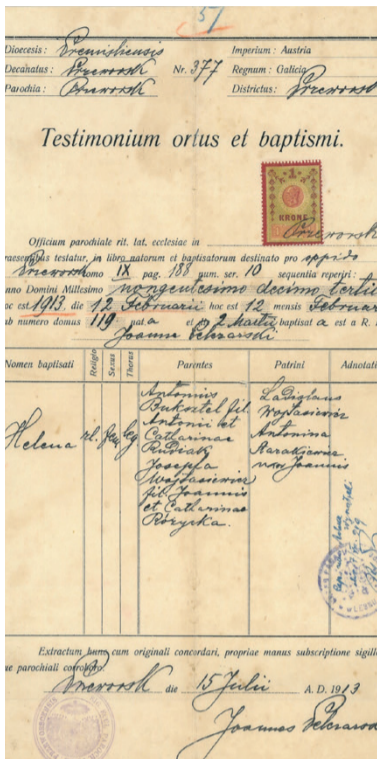 51
Dioecesis: Premisliensis Imperium: Austria
Decanatus: Przeworsk Nr. 377 Regnum: Galicia
Parochia: Przeworsk Districtus: Przeworsk
Testimonium ortus et baptismi.
1
KRONE
Officium parochiale rit. lat. ecclesiae in Przeworsk
praesentibus testatur, in libro natorum et baptisatorum destinato pro oppido
Przeworsk tomo IX pag. 188 num. ser. 10 sequentia reperiri:
nno Domini Millesimo nongentesimo decimo tertio
hoc est 1913. die 12 Februarii hoc est 12 mensis Februar
ub numero domus 119 nata et 2 Martii baptisat a est a R.
Joanne
Nomen baptisati Religio Sexus Thorus Parentes Patrini Adnotati
Helena rl. fem. leg.
Antonius
fil.
Antonii et
Catharinae
Rudiak
Josepha
Wojtasiewicz
fil. Joannis
et Catharinae
Różycka.
Ladislaus
Wojtasiewicz
Antonina
Joannis
Extractum hunc cum originali concordari, propriae manus subscriptione sigill
ue parochiali corroboro.
Przeworsk die 15 Julii A. D. 1913
Joannes